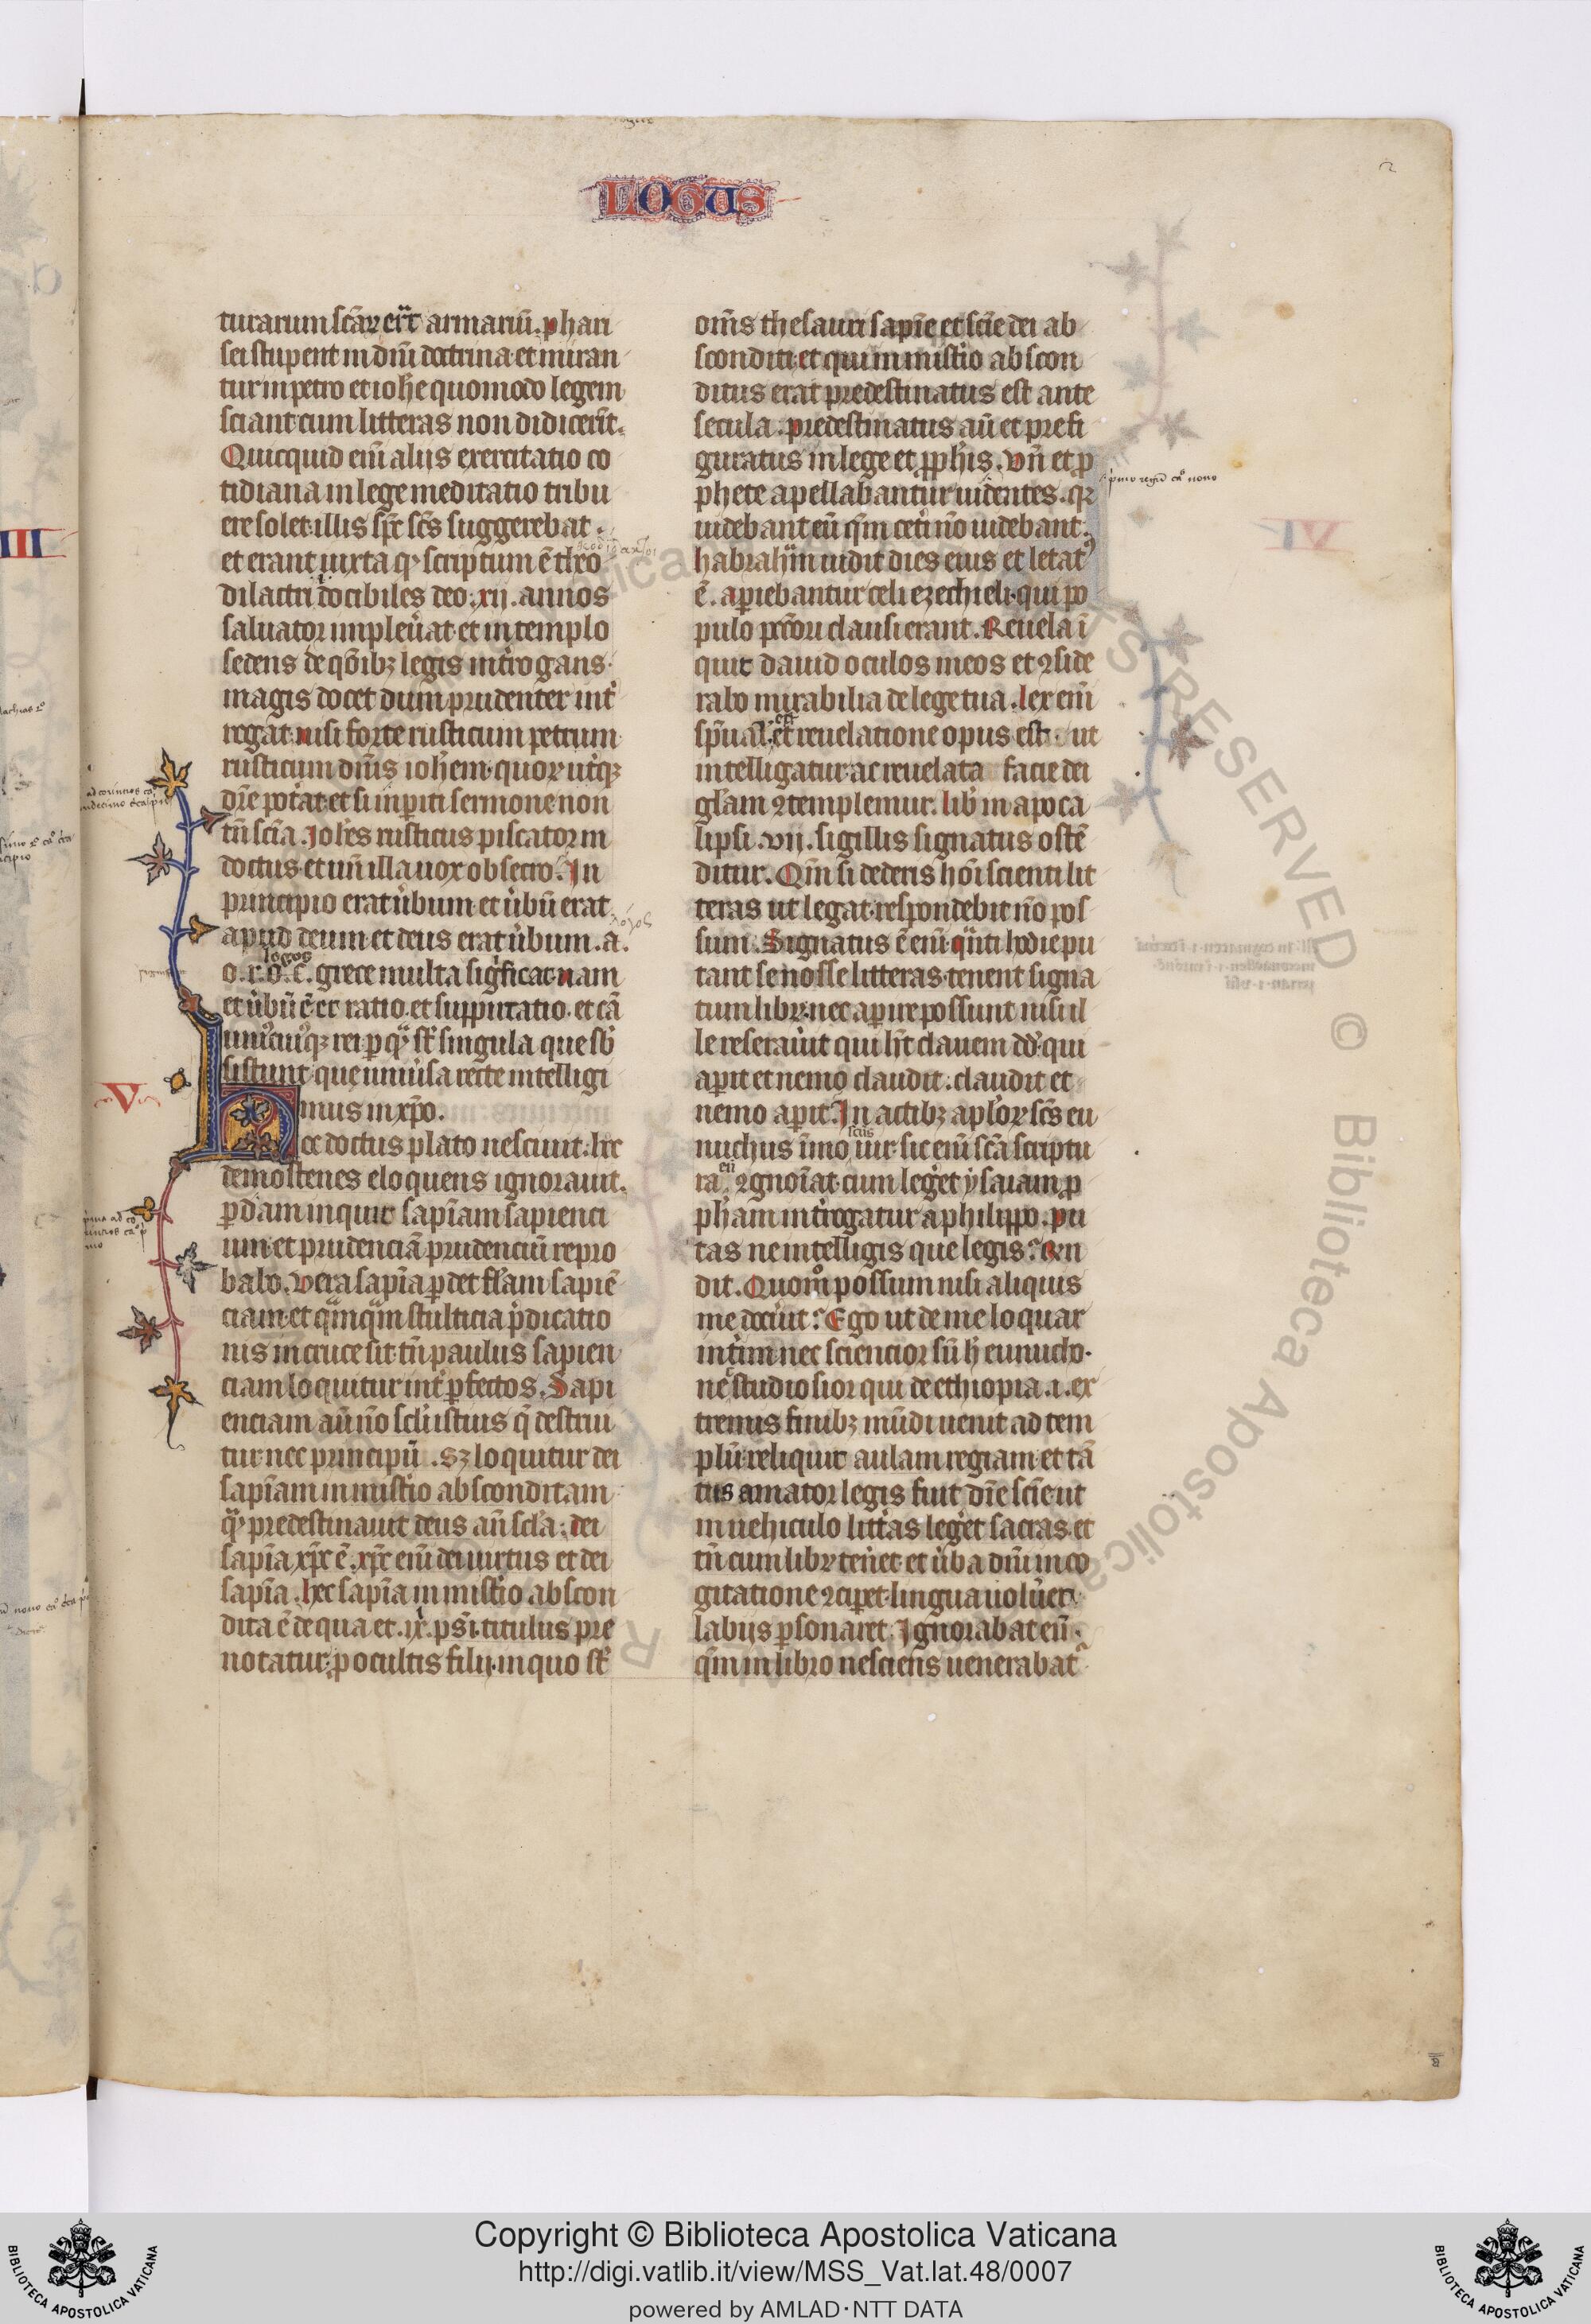 LOGUS
turarum scãrꝝ erit armariũ. phari
sei stupent in dñi doctrina et miran
tur in petro et ioh̃e quomodo legem
sciant cum litteras non didicerĩt.
Quicquid eiñ alijs exercitatio co
tidiana in lege meditatio tribu
ere solet illis sp̃c sc̃s suggerebat.
et erant iuxta qꝫ scriptum ẽ theo
dilacti docibiles deo. xij. annos
saluator impleu̾at et in templo
sedens de q̃õibꝫ legis int̾rogans
magis docet dum prudenter int̾
rogat nisi forte rusticum petrum
rusticum dm̃s ioh̃em quorꝝ ut̾qꝫ
dic̃e pot̾at et si inꝑiti sermone non
tñ sciã. Joh̃es rusticus piscator in
doctus et uñ illa uox obsecro. In
principio erat u̾bum et u̾bũ erat
apud deum et deus erat u̾bum. a.
logos
o. r. o. c. grece multa sig̾ficat nam
et u̾bũ ẽ et ratio et supputatio et cã
uni᷒cui᷒qꝫ rei ꝑ qꝫ st̃ singula que sb̾
sistunt que uniu̾sa recte intelligi
mus in xp̃o.
V
Hec doctus plato nesciuit. hec
demostenes eloquens ignorauit.
ꝑdam inquit sapĩam sapienci
um et prudenciã prudenciũ repro
babo. Vera sapĩa ꝑdet fl̃am sapiẽ
ciam et q̃mq̃m stulticia p̾dicatio
nis in cruce sit tñ paulus sapien
ciam loquitur int̾ ꝑfectos. Sapi
enciam aũ ño scl̾i istius q̃ destrui
tur nec principũ. sꝫ loquitur dei
sapĩam in mist̾io absconditam
q̃ꝫ predestinauit deus añ scl̾a. dei
sapĩa xp̃c ẽ. xp̃c eiñ dei uirtus et dei
sapĩa. hec sapĩa in mist̾io abscon
dita ẽ de qua et. ix. ps̃i. titulus pre
notatur ꝓ ocultis filij in quo st̃
om̃s thesauri sapĩe et scĩe dei ab
sconditi et qui in mist̾io abscon
ditus erat predestinatus est ante
secula. predestinatus aũ et prefi
guratus in lege et ꝓph̾is. Vñ et ꝓ
phete apellabantur uidentes. qꝛ
primo regũ caº nono
uidebant eũ q̃m cet̾i ño uidebant.
habrah̃m uidit dies eius et letat᷒
ẽ. aꝑiebantur celi ezechieli qui po
pulo pcc̃ori clausi erant. Reuela ĩ
quit dauid oculos meos et ꝯside
rabo mirabilia de lege tua. lex eiñ
est
sp̃ual̾. et reuelatione opus est ut
intelligatur ac reuelata facie dei
gl̃am ꝯtemplemur. lib̾ in apoca
lipsi. vij. sigillis signatus ostẽ
ditur. Qm̃ si dederis hõi scienti lit
teras ut legat respondebit ño pos
sum. Signatus ẽ eiñ. q̃nti hodie pu
tant se nosse litteras tenent signa
tum librꝝ nec aꝑire possunt nisi il
le reserau̾it qui h̾t clauem dd̾ qui
aꝑit et nemo claudit. claudit et
nemo aꝑit. In actibꝫ apl̾orꝝ sc̃s eu
scũs
nuchus ĩmo uir sic eiñ scã scriptu
eũ
ra ꝯgnoĩat cum leg̾et ysaiam ꝓ
ph̾am int̾rogatur a philippo. pu
tas ne intelligis que legis? Rñ
dit. Quom̊ possum nisi aliquis
me docu̾it? Ego ut de me loquar
int̾im nec sciencior sũ h̾ eunucho
ne᷒ studiosior qui de ethiopia. i. ex
tremis finibꝫ mũdi uenit ad tem
plũ reliquit aulam regiam et tã
tus amator legis fuit diũe scĩe ut
in uehiculo litt̾as leg̾et sacras et
tñ cum librꝝ ten̾et et u̾ba dñi in co
gitatione ꝯciꝑet lingua uolu̾et
labijs ꝑsonaret. Ignorabat eũ
q̃m in libro nesciens uenerabat᷒
Copyright © Biblioteca Apostolica Vaticana
http://digi.vatlib.it/view/MSS_Vat.lat.48/0007
powered by AMLAD·NTT DATA
BIBLIOTECA APOSTOLICA VATICANA
BIBLIOTECA APOSTOLICA VATICANA